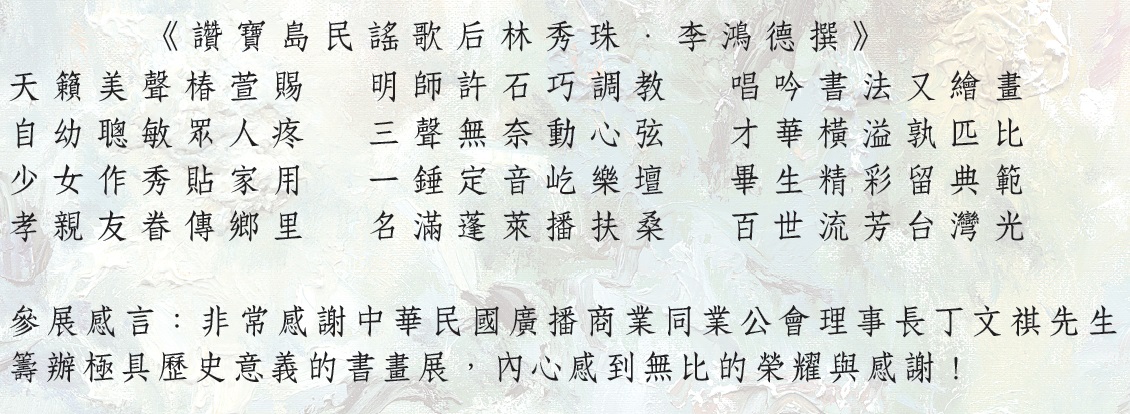 《讚寶島民謠歌后林秀珠．李鴻德撰》
天籟美聲椿萱賜　明師許石巧調教　唱吟書法又繪畫
自幼聰敏眾人疼　三聲無奈動心弦　才華橫溢孰匹比
少女作秀貼家用　一錘定音屹樂壇　畢生精彩留典範
孝親友眷傳鄉里　名滿蓬萊播扶桑　百世流芳台灣光
參展感言：非常感謝中華民國廣播商業同業公會理事長丁文祺先生
籌辦極具歷史意義的書畫展，內心感到無比的榮耀與感謝！